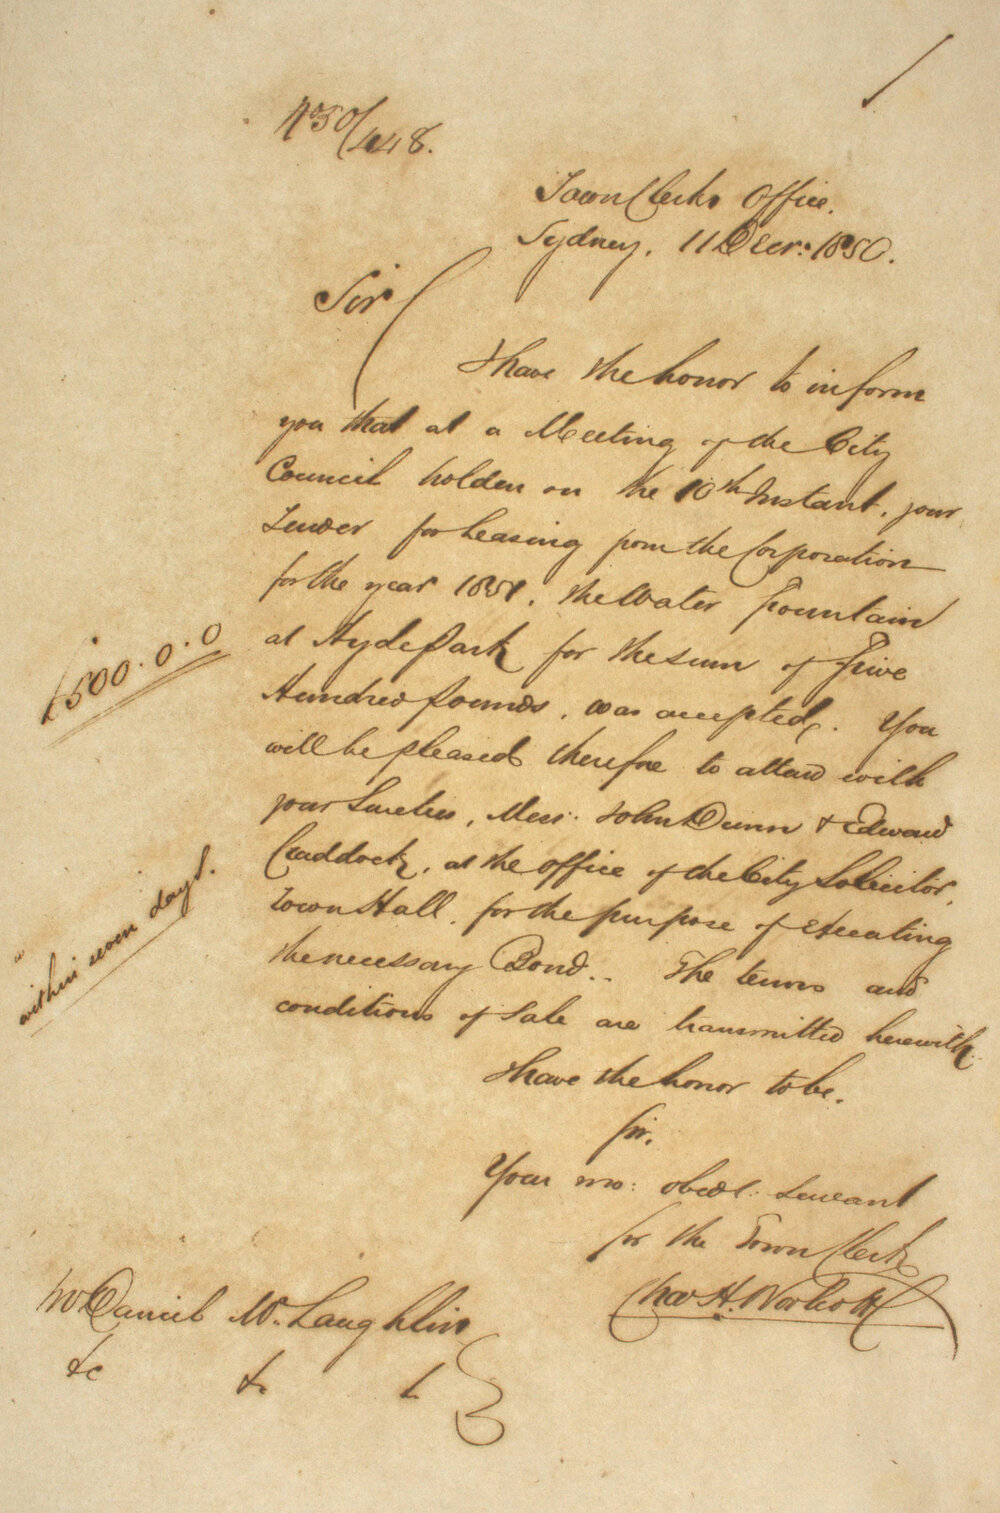 No 50/448.
Town Clerks Office.
Sydney. 11 Decr: 1850.
Sir
I have the honor to inform
you that at a Meeting of the City
Council holden on the 10th Instant, your
Tender for leasing from the Corporation
for the year 1851, the Water Fountain
at Hyde Park for the sum of Five
£500.0.0
Hundred Pounds, was accepted. You
will be pleased therefore to attend with
your Sureties, Mess: John Dunn & Edward
Craddock, at the office of the City Solicitor,
Town Hall, for the purpose of executing
within seven days.
the necessary Bond.. The terms and
conditions of Sale are transmitted herewith.
I have the honor to be.
Sir,
Your mo: obedt: Servant
for the Town Clerk
Chas H. Woolcott
Mr Daniel Mc.Laughlin
&c &c &c